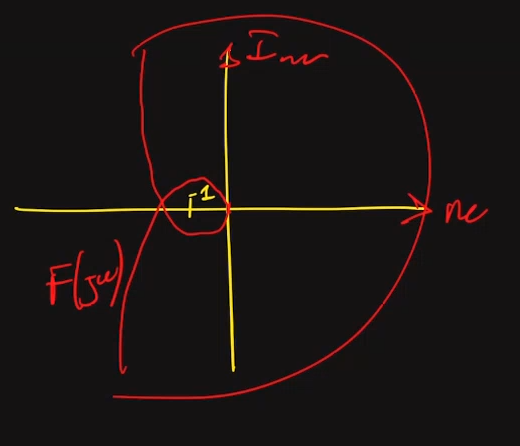 Im
-1
Re
F(jw)